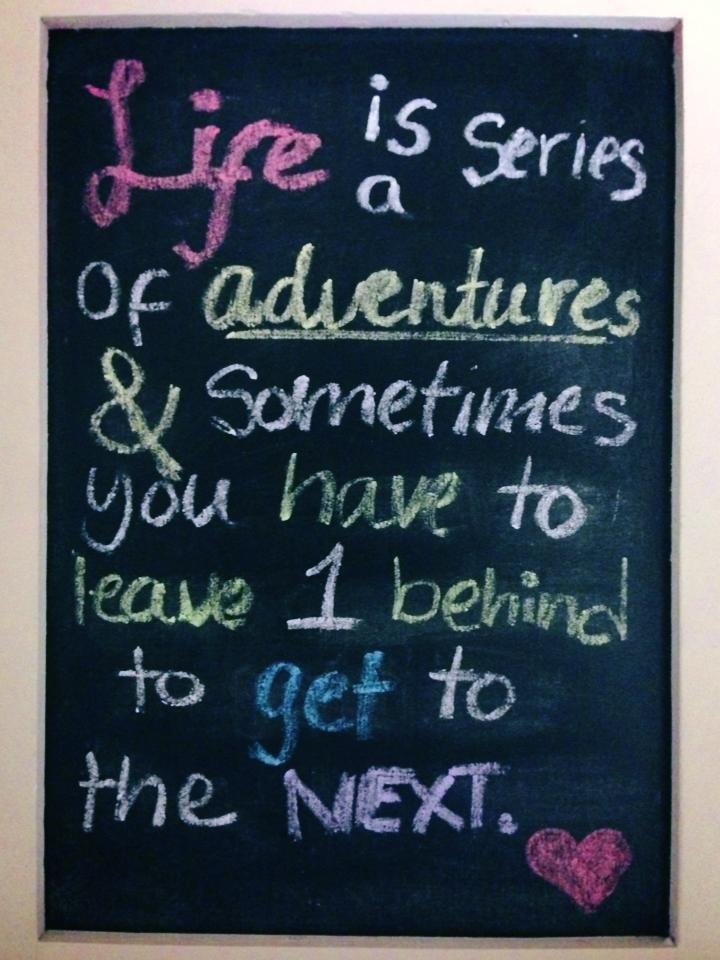 Life is a series
of adventures
& Sometimes
you have to
leave 1 behind
to get to
the NEXT.